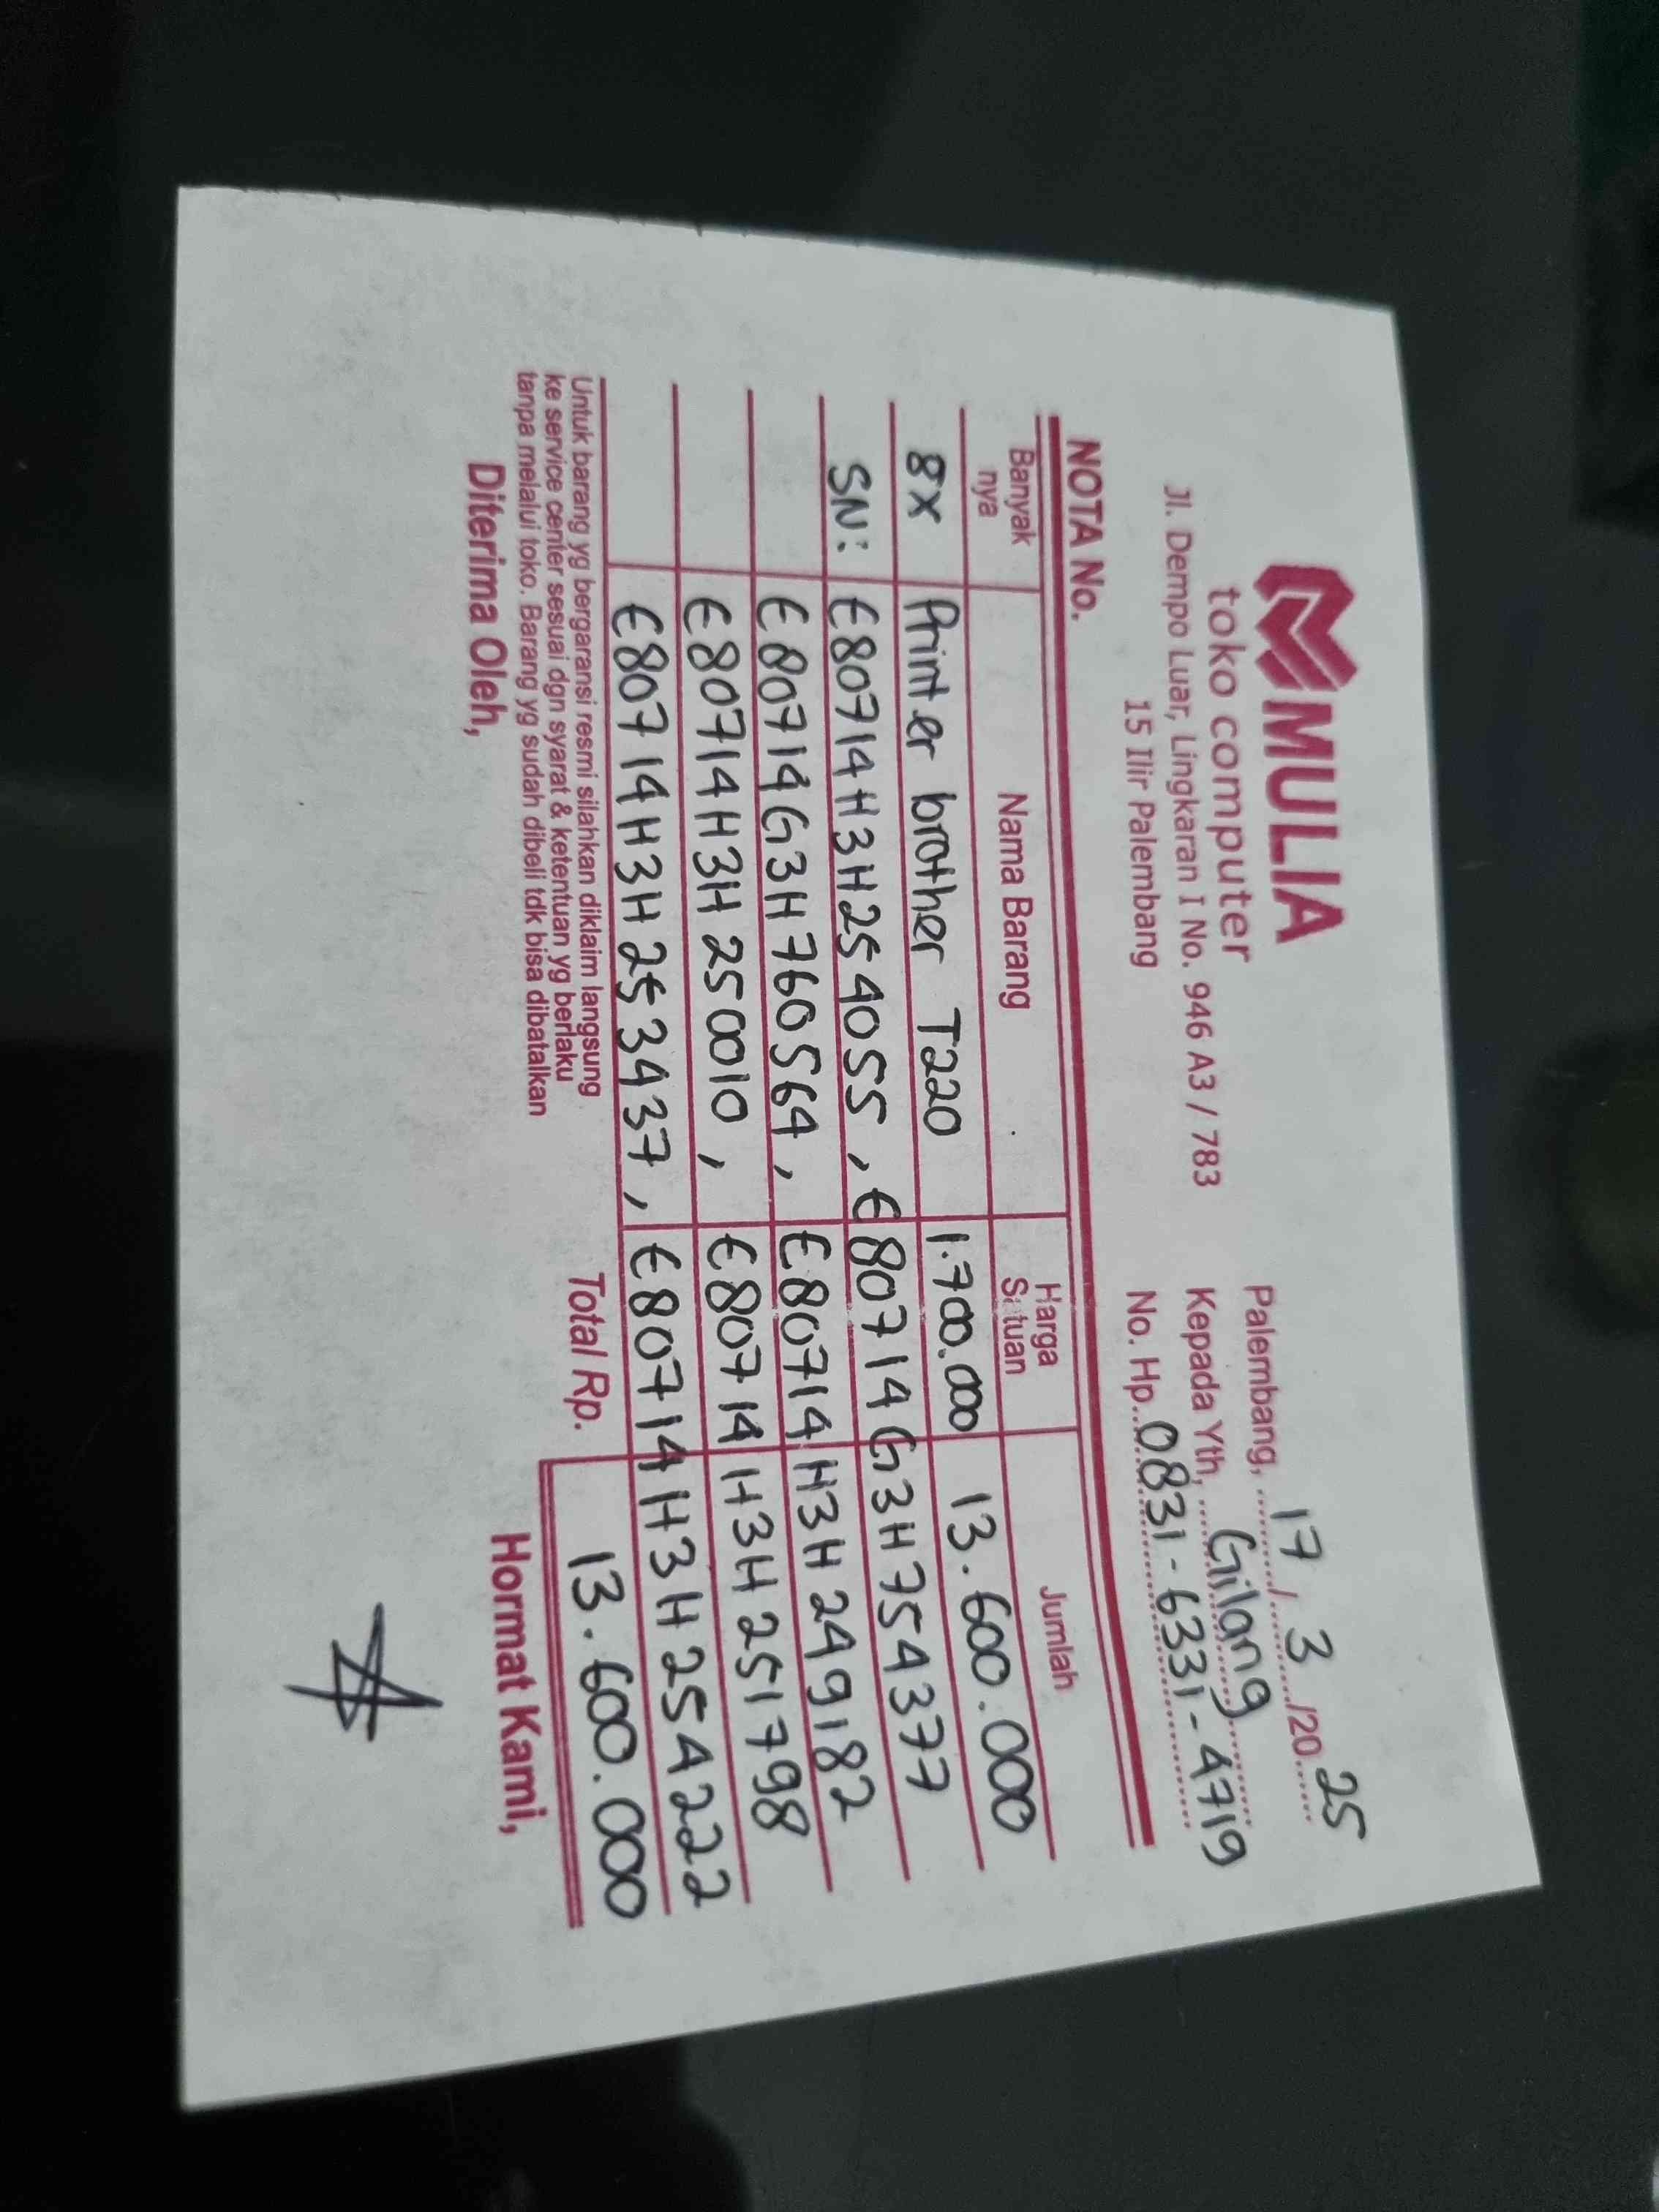 MULIA
toko computer
Jl. Dempo Luar, Lingkaran I No. 946 A3 / 783
15 Ilir Palembang
Palembang, 17 / 3 /20 25
Kepada Yth, Gilang
No. Hp. 0831-6331-4719
NOTA No.
Banyak nya Nama Barang Harga Satuan Jumlah
8x Printer brother T220 1.700.000 13.600.000
SN: E80714H3H254055, E80714G3H754377
E80714G3H760564, E80714H3H249182
E80714H3H250010, E80714H3H251798
E80714H3H253437, E80714H3H254222
Untuk barang yg bergaransi resmi silahkan diklaim langsung
ke service center sesuai dgn syarat & ketentuan yg berlaku
tanpa melalui toko. Barang yg sudah dibeli tdk bisa dibatalkan
Total Rp. 13.600.000
Diterima Oleh, Hormat Kami,